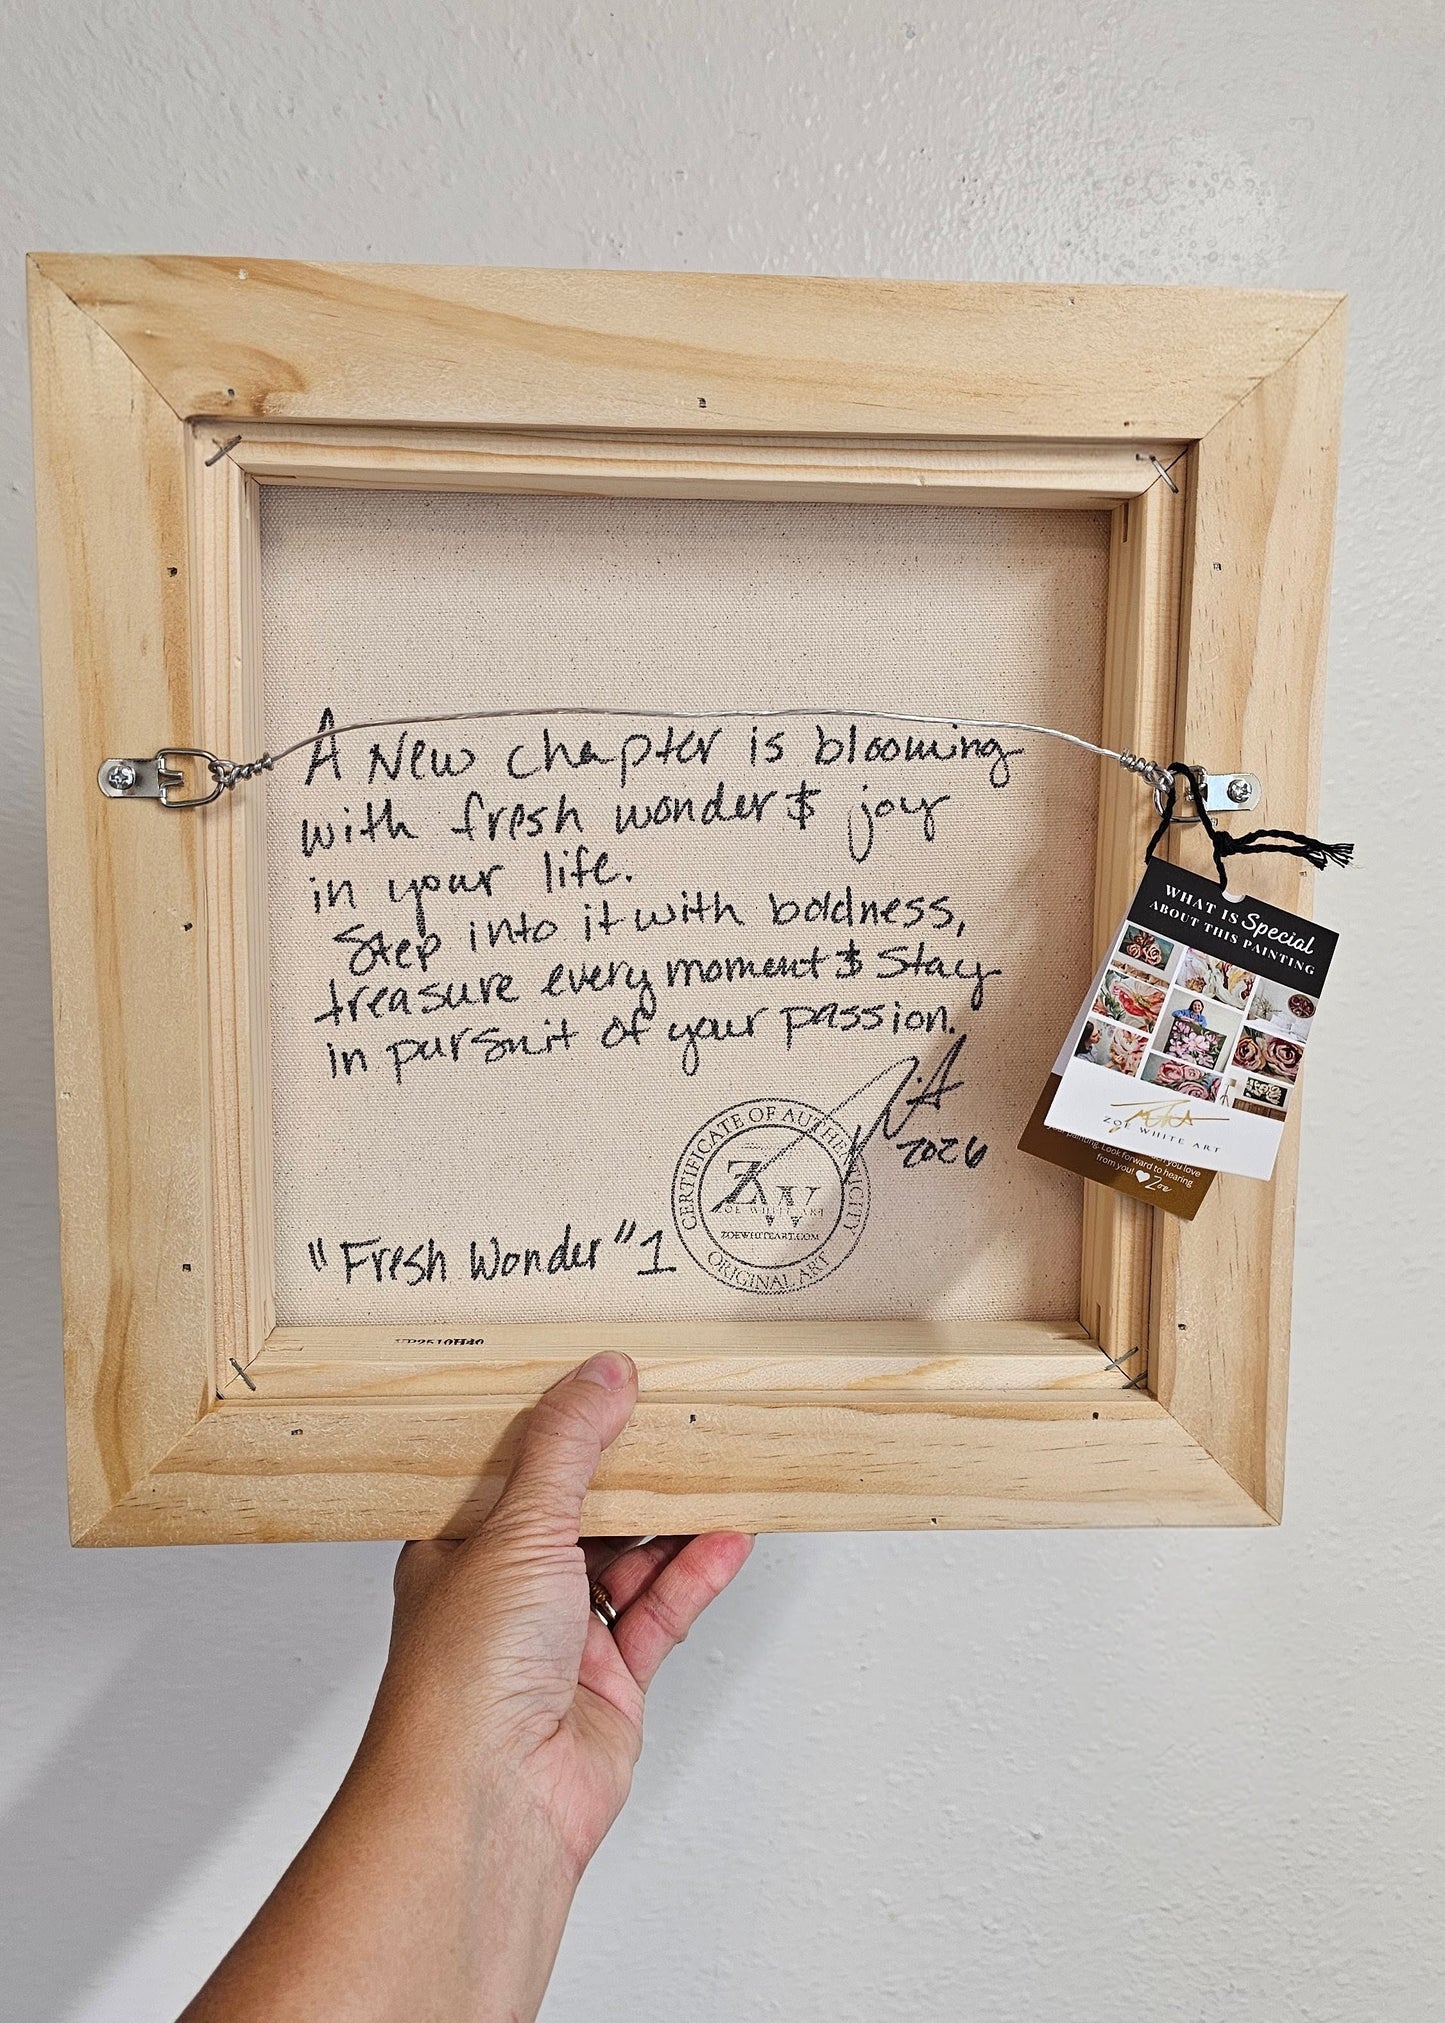 A New chapter is blooming
with fresh wonder & joy
in your life.
Step into it with boldness,
treasure every moment & stay
in pursuit of your passion.
2026
"Fresh Wonder" 1
CERTIFICATE OF AUTHENTICITY
ZW
ZOE WHITE ART
ZOEWHITEART.COM
ORIGINAL ART
WHAT IS Special
ABOUT THIS PAINTING
ZOE WHITE ART
you love
your painting. Look forward to hearing
from you! ♥ Zoe